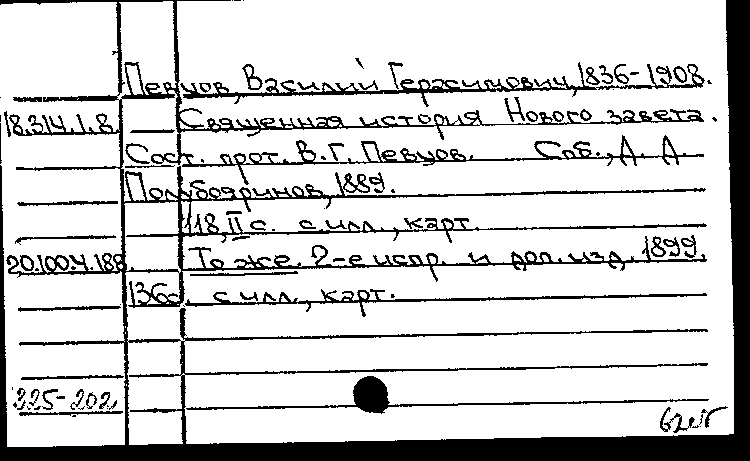 Певцов, Василий Герасимович, 1836-1908.
18.314.1.8. Священная история Нового завета.
Сост. прот. В. Г. Певцов. Спб., Д. Д.
Полубояринов, 1889.
118, II с. с илл., карт.
20.100.4.188. То же. 2-е испр. и доп. изд. 1899.
136с. с илл., карт.
225-202